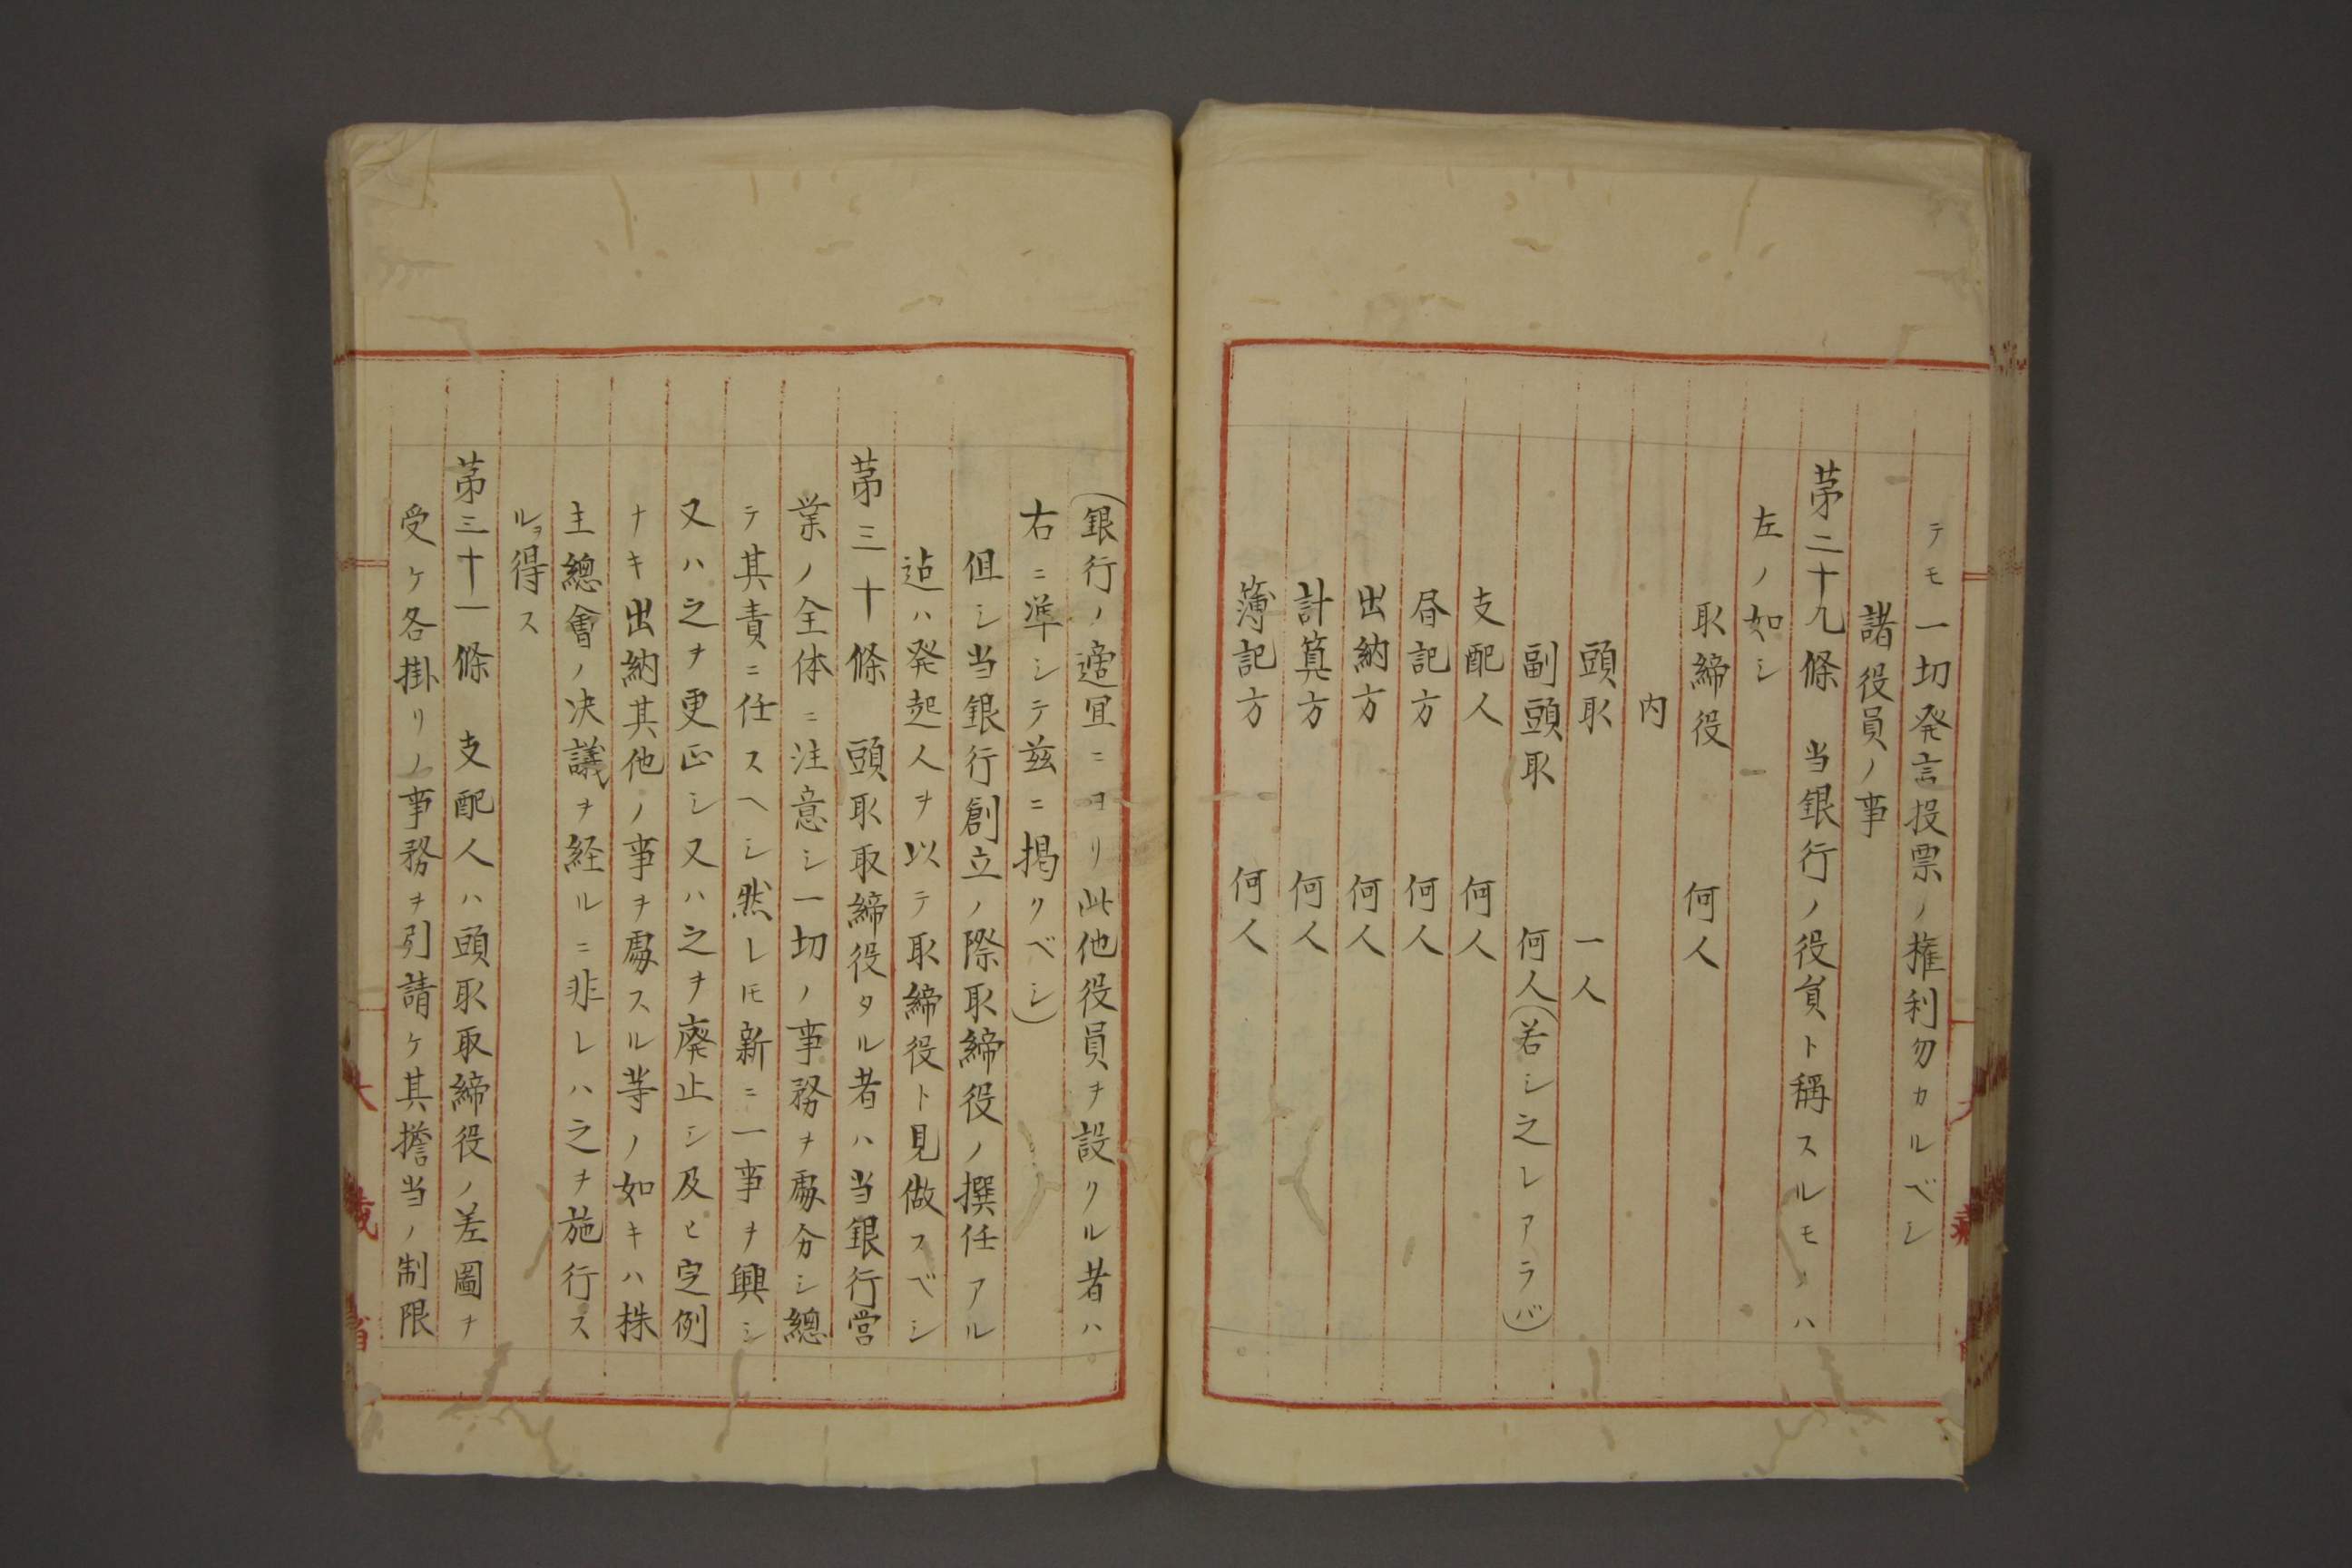 テモ一切発言投票ノ権利勿カルベシ
諸役員ノ事
第二十九條　当銀行ノ役員ト稱スルモノハ
左ノ如シ
取締役　何人
内
頭取　一人
副頭取　何人(若シ之レアラバ)
支配人　何人
昼記方　何人
出納方　何人
計算方　何人
簿記方　何人
(銀行ノ適宜ニヨリ此他役員ヲ設クル者ハ
右ニ準シテ茲ニ掲クベシ)
但シ当銀行創立ノ際取締役ノ撰任アル
迠ハ発起人ヲ以テ取締役ト見做スベシ
第三十條　頭取取締役タル者ハ当銀行営
業ノ全体ニ注意シ一切ノ事務ヲ處分シ總
テ其責ニ任スヘシ然レ𪜈新ニ一事ヲ興シ
又ハ之ヲ更正シ又ハ之ヲ廃止シ及ヒ定例
ナキ出納其他ノ事ヲ處スル等ノ如キハ株
主總會ノ决議ヲ経ルニ非レハ之ヲ施行ス
ルヲ得ス
第三十一條　支配人ハ頭取取締役ノ差圖ヲ
受ケ各掛リノ事務ヲ引請ケ其擔当ノ制限
大蔵省